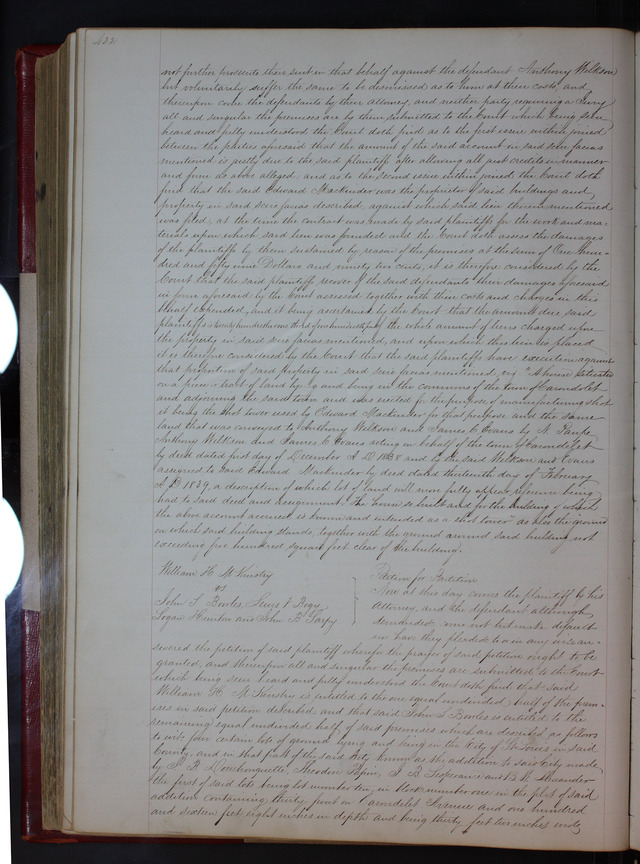 not further prosecute their suit in that behalf against the defendant Anthony Wilkson
but voluntarily suffer the same to be dismissed as to him at their costs, and
thereupon come the defendants by their attorney, and neither party requiring a Jury
all and singular the premises are by them submitted to the Court which being seen
heard and fully understood the Court doth find as to the first issue within joined
between the parties aforesaid that the amount of the said account in said scire facias
mentioned is justly due to the said plaintiffs after allowing all just credits in manner
and form as above alleged. and as to the second issue within joined, the Court doth
find that the said Edward Mackinder was the proprietor of said buildings and
property in said scire facias described against which said lien therein mentioned
was filed, at the time the contract was made by said plaintiffs for the work and ma-
terials upon which said lien was founded and the Court doth assess the damages
of the plaintiffs by them sustained by reason of the premises at the sum of One hun-
dred and fifty nine Dollars and ninety two cents, it is therefore considered by the
Court that the said plaintiffs recover of the said defendants their damages aforesaid
in form aforesaid by the Court assessed together with their costs and charges in this
behalf expended, and it being ascertained by the Court that the amount due said
plaintiffs is the whole amount of liens charged upon
the property in said scire facias mentioned, and upon which this lien is placed
it is therefore considered by the Court that the said plaintiffs have execution against
that proportion of said property in said scire facias mentioned, viz "A house situated
on a piece & lot of land lying and being in the commons of the town of Carondelet
and adjoining the said town and was erected for the purpose of manufacturing shot
it being the Shot tower used by Edward Mackinder for that purpose and the same
land that was conveyed to Anthony Wilkson and James C Evans by
Anthony Wilkson and James C Evans acting in behalf of the town of Carondelet
by deed dated first day of December A D 1838 and by the said Wilkson and Evans
assigned to said Edward Mackinder by deed dated thirteenth day of February
A D 1839, a description of which lot of land will more fully appear reference being
had to said deed and assignment. The house so built and for the building of which
the above account accrued is known and intended as a shot tower" as also the ground
on which said building stands, together with the ground around said building not
exceeding five hundred square feet clear of the building.
William H McKinsley
vs
John S Bowles, Lewis V Bogy
Logan Hunton and John B Sarpy
Petition for Partition
Now at this day comes the plaintiff by his
Attorney, and the defendants although
demanded come not but make default
nor have they pleaded to or in any wise an-
swered the petition of said plaintiff wherefore the prayer of said petition ought to be
granted, and thereupon all and singular the premises are submitted to the Court
which being seen heard and fully understood the Court doth find that said
William H McKinsley is entitled to the one equal undivided half of the prem-
ises in said petition described and that said John S Bowles is entitled to the
remaining equal undivided half of said premises which are described as follows
to wit: four certain lots of ground lying and being in the City of St Louis in said
County, and in that part of the said City known as the addition to said City made
by Theodore Papin, and
the first of said lots being lot number ten, in block number one in the plat of said
addition containing thirty feet on Carondelet Avenue and one hundred
and sixteen feet eight inches in depth and being thirty feet ten inches